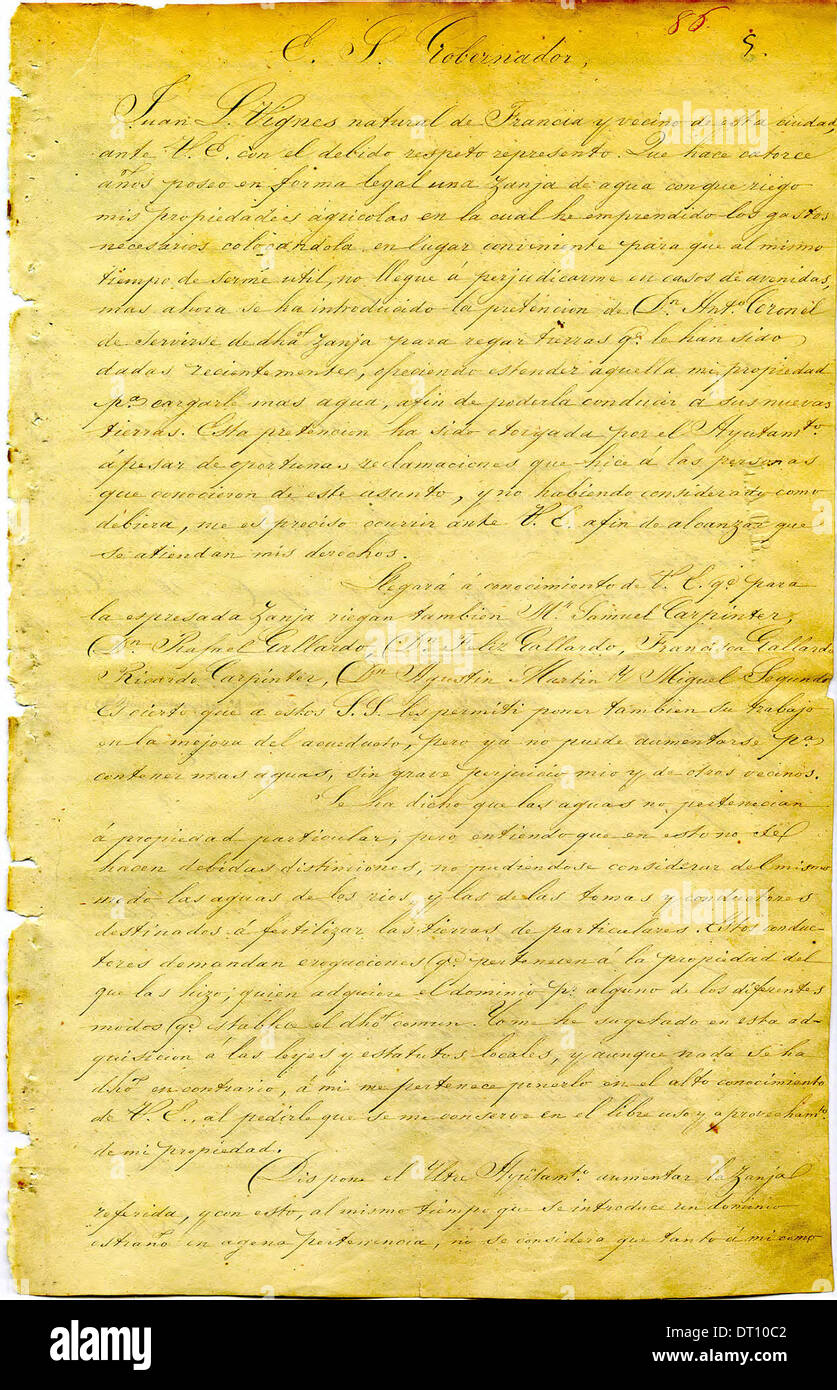 86 5.
E. S. Gobernador,
Juan L. Vignes natural de Francia y vecino de esta ciudad,
ante V. E. con el debido respeto represento. Que hace catorce
años poseo en forma legal una zanja de agua con que riego
mis propiedades agricolas en la cual he emprendido los gastos
necesarios colocandola en lugar conveniente para que al mismo
tiempo de serme util, no llegue á perjudicarme en casos de avenidas,
mas ahora se ha introducido la pretencion de Dn. Anto. Coronel
de servirse de dha. zanja para regar tierras qe. le han sido
dadas recientemente, ofreciendo estender aquella mi propiedad
pa. cargarle mas agua, afin de poderla conducir a sus nuevas
tierras. Esta pretencion ha sido otorgada por el Ayuntamto.
ápesar de oportunas reclamaciones que hice á las personas
que conocieron de este asunto, y no habiendo considerado como
debiera, me es preciso ocurrir ante V. E. afin de alcanzar que
se atiendan mis derechos.
Llegará á conocimiento de V. E. qe. para
la espresada zanja riegan tambien Mr. Samuel Carpinter,
Dn. Rafael Gallardo, Dn. Feliz Gallardo, Francisca Gallardo
Ricardo Carpinter, Dn. Agustin Martin y Miguel Segundo
Es cierto que a estos S.S. les permiti poner tambien su trabajo
en la mejora del acueducto, pero ya no puede aumentarse pa.
contener mas aguas, sin grave perjuicio mio y de otros vecinos.
Se ha dicho que las aguas no pertenician
á propiedad particular; pero entiendo que en esto no se
hacen debidas distinciones, no pudiendose considerar del mismo
modo las aguas de los rios, y las de las tomas y conductores
destinados á fertilizar las tierras de particulares. Estos conduc-
tores demandan erogaciones qe. pertenecen á la propiedad del
que las hizo; quien adquiere el dominio pr. alguno de los diferentes
modos qe. establece el dho. comun. Yo me he sugetado en esta ad-
quisicion á las leyes y estatutos locales, y aunque nada se ha
dho. en contrario, á mi me pertenece ponerlo en el alto conocimiento
de V. E., al pedirle que se me conserve en el libre uso y aprovechamto.
de mi propiedad.
Dispone el Yltre. Ayuntamto. aumentar la zanja
referida, y con esto, al mismo tiempo que se introduce un dominio
estraño en agena pertenencia, no se considera que tanto á mi como
alamy
Image ID: DT10C2
www.alamy.com